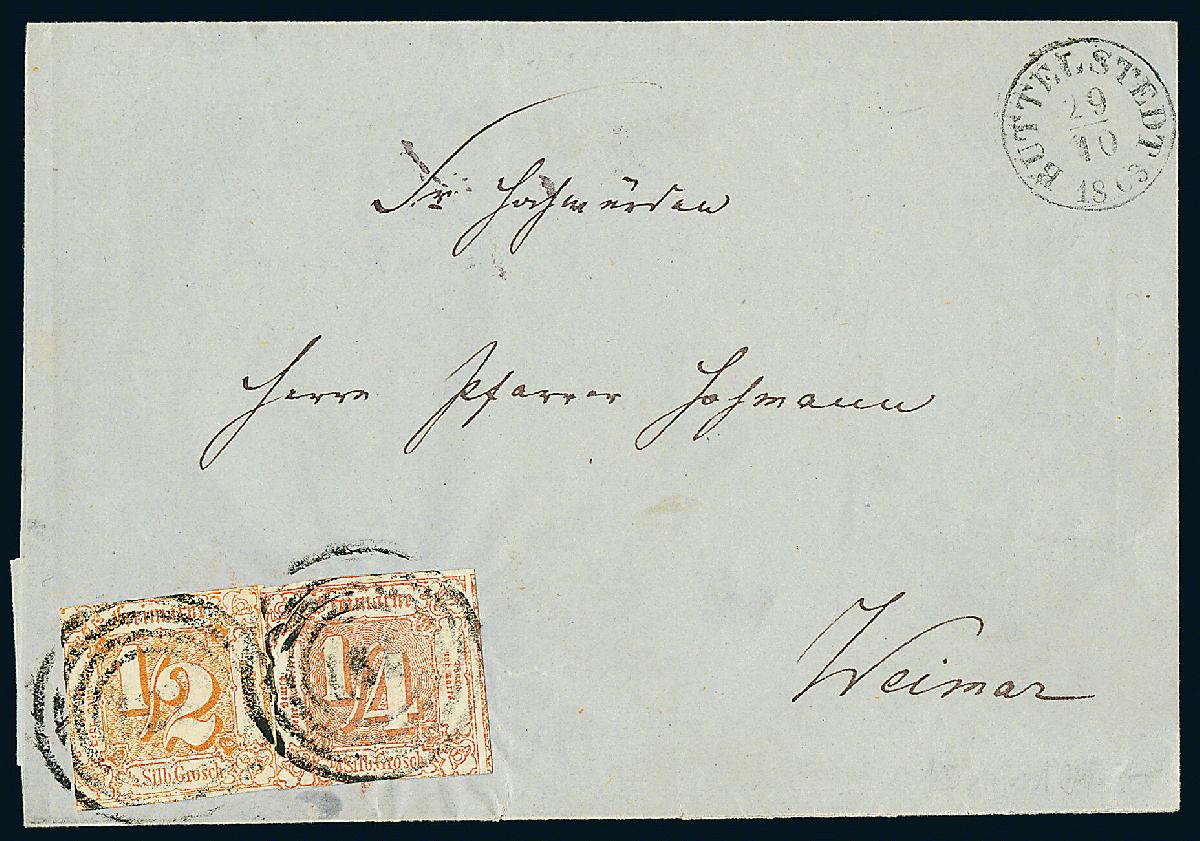 BUTTELSTEDT
29
10
1863
Sr Hochwürden
Herrn Pfarrer Hofmann
Weimar
Freimarke
1/2
Silb. Grosch
Freimarke
1/4
Silb. Grosch